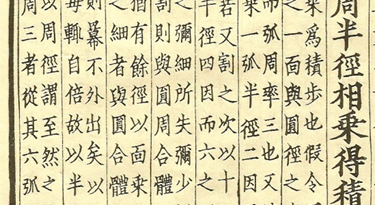 周半徑相乘得積
乘爲積步也假令
之一面與圓徑之
而弧周率三也又
乘一弧半徑二因
若又割之次以十
半徑四因而六之
之彌細所失彌少
割則與圓合體
猶有餘徑以面乘
之細者與圓合體
則冪不外出矣以
每輒自倍故以半
以周徑謂至然之
周三者從其六弧